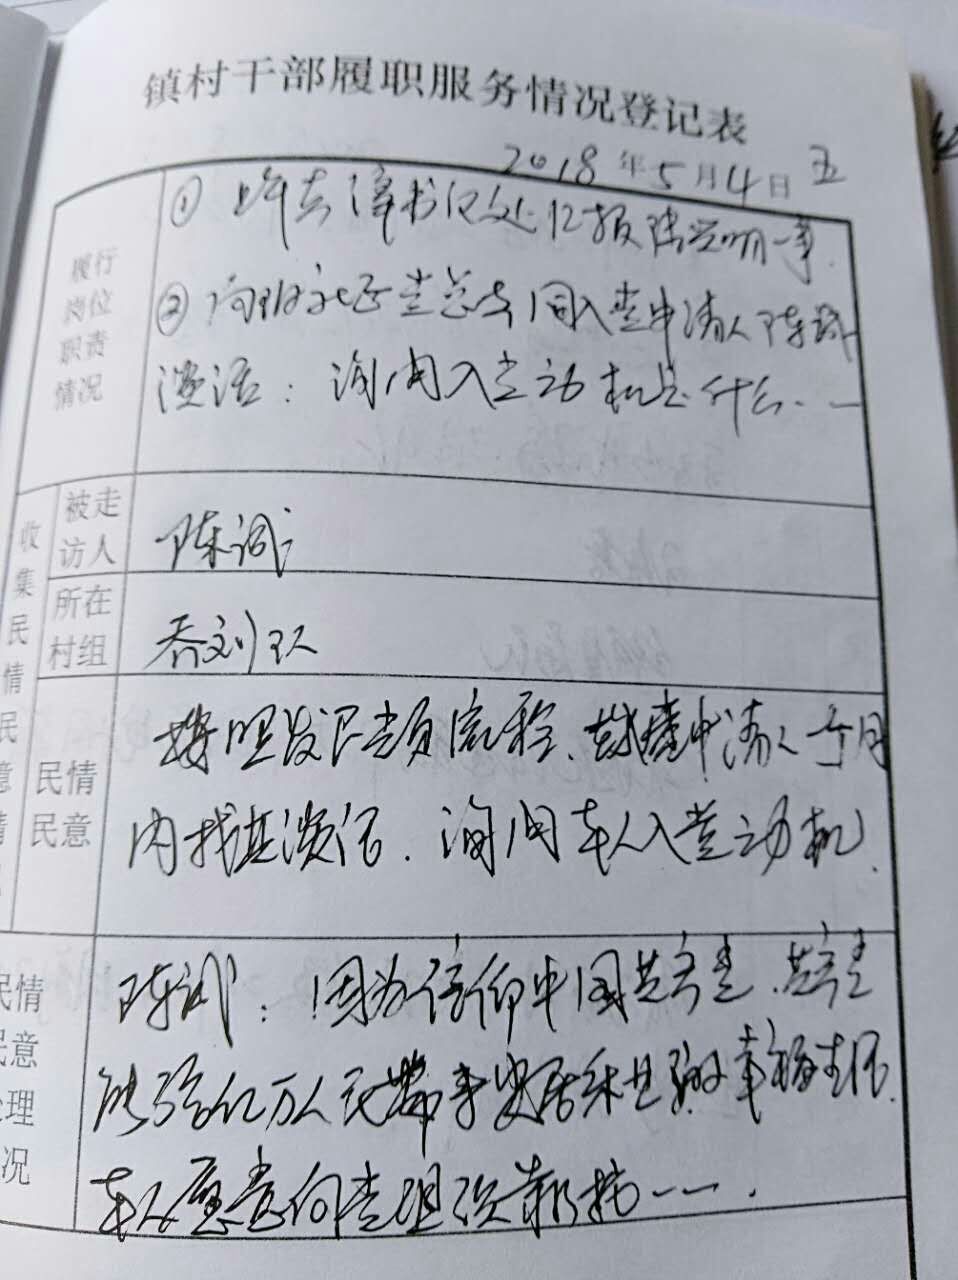 镇村干部履职服务情况登记表
2018年5月4日 五
履行
岗位
职责
情况
① 去 书记处汇报 一事.
② 党总支 同入党申请人陈
谈话：询问入党动机是什么……
收集民情民意情
被走
访人
陈
所在
村组
乔刘
民情
民意
按照发展党员流程、 申请人一个月
内找其谈话. 询问本人入党动机.
民情
民意
处理
况
陈 ：因为信仰中国共产党、共产党
能 亿万人民带来安居乐业 幸福生活.
本人愿意向党组织 …….